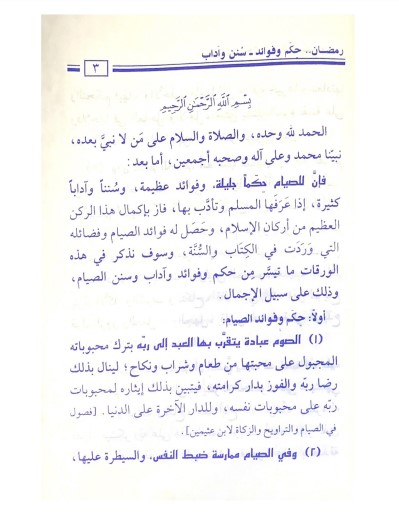 رمضـان.. حِكَم وفوائد - سُنن وآداب
٣
بِسْمِ اللَّهِ الرَّحْمَنِ الرَّحِيمِ
الحمد لله وحده، والصلاة والسلام على مَن لا نبيَّ بعده،
نبيّنا محمد وعلى آله وصحبه أجمعين، أما بعد:
فإنَّ للصيام حِكَماً جليلة، وفوائد عظيمة، وسُنناً وآداباً
كثيرة، إذا عَرَفَها المسلم وتأدَّب بها، فاز بإكمال هذا الركن
العظيم من أركان الإسلام، وحَصَل له فوائد الصيام وفضائله
التي وَرَدَت في الكِتاب والسُّنَّة، وسوف نذكر في هذه
الورقات ما تيسَّر مِن حِكم وفوائد وآداب وسنن الصيام،
وذلك على سبيل الإجمال.
أولاً: حِكم وفوائد الصيام:
(١) الصوم عبادة يتقرَّب بها العبد إلى ربِّه بترك محبوباته
المجبول على محبتها من طعام وشراب ونكاح؛ لينال بذلك
رضا ربِّه والفوز بدار كرامته، فيتبين بذلك إيثاره لمحبوبات
ربِّه على محبوبات نفسه، وللدار الآخرة على الدنيا. [فصول
في الصيام والتراويح والزكاة لابن عثيمين].
(٢) وفي الصيام ممارسة ضبط النفس، والسيطرة عليها،